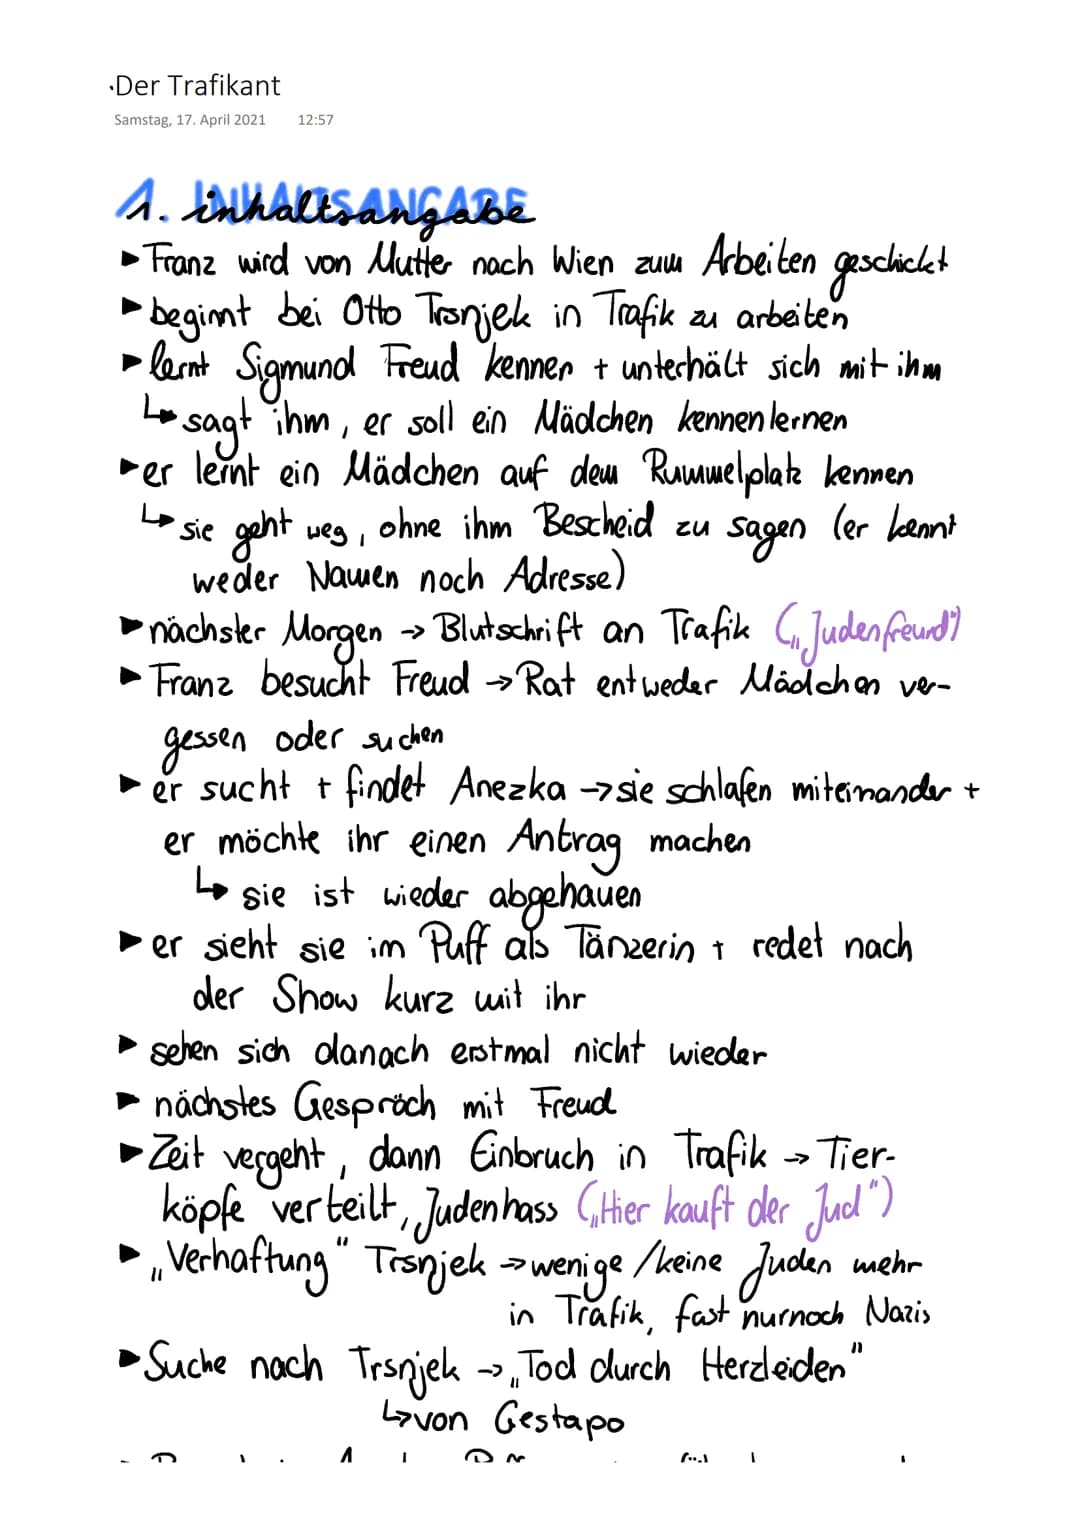 ·Der Trafikant
Samstag, 17. April 2021 12:57
1. INHALTSANGABE inhaltsangabe
▶ Franz wird von Mutter nach Wien zum Arbeiten geschickt
▶ beginnt bei Otto Trsnjek in Trafik zu arbeiten
▶ lernt Sigmund Freud kennen + unterhält sich mit ihm
↳ sagt ihm, er soll ein Mädchen kennenlernen
▶ er lernt ein Mädchen auf dem Rummelplatz kennen
↳ sie geht weg, ohne ihm Bescheid zu sagen (er kennt
weder Namen noch Adresse)
▶ nächster Morgen → Blutschrift an Trafik („Judenfreund")
▶ Franz besucht Freud → Rat entweder Mädchen ver-
gessen oder suchen
▶ er sucht + findet Anezka → sie schlafen miteinander +
er möchte ihr einen Antrag machen
↳ sie ist wieder abgehauen
▶ er sieht sie im Puff als Tänzerin + redet nach
der Show kurz mit ihr
▶ sehen sich danach erstmal nicht wieder
▶ nächstes Gespräch mit Freud
▶ Zeit vergeht, dann Einbruch in Trafik → Tier-
köpfe verteilt, Judenhass („Hier kauft der Jud")
▶ „Verhaftung" Trsnjek → wenige/keine Juden mehr
in Trafik, fast nurnoch Nazis
▶ Suche nach Trsnjek → „Tod durch Herzleiden"
↳ von Gestapo